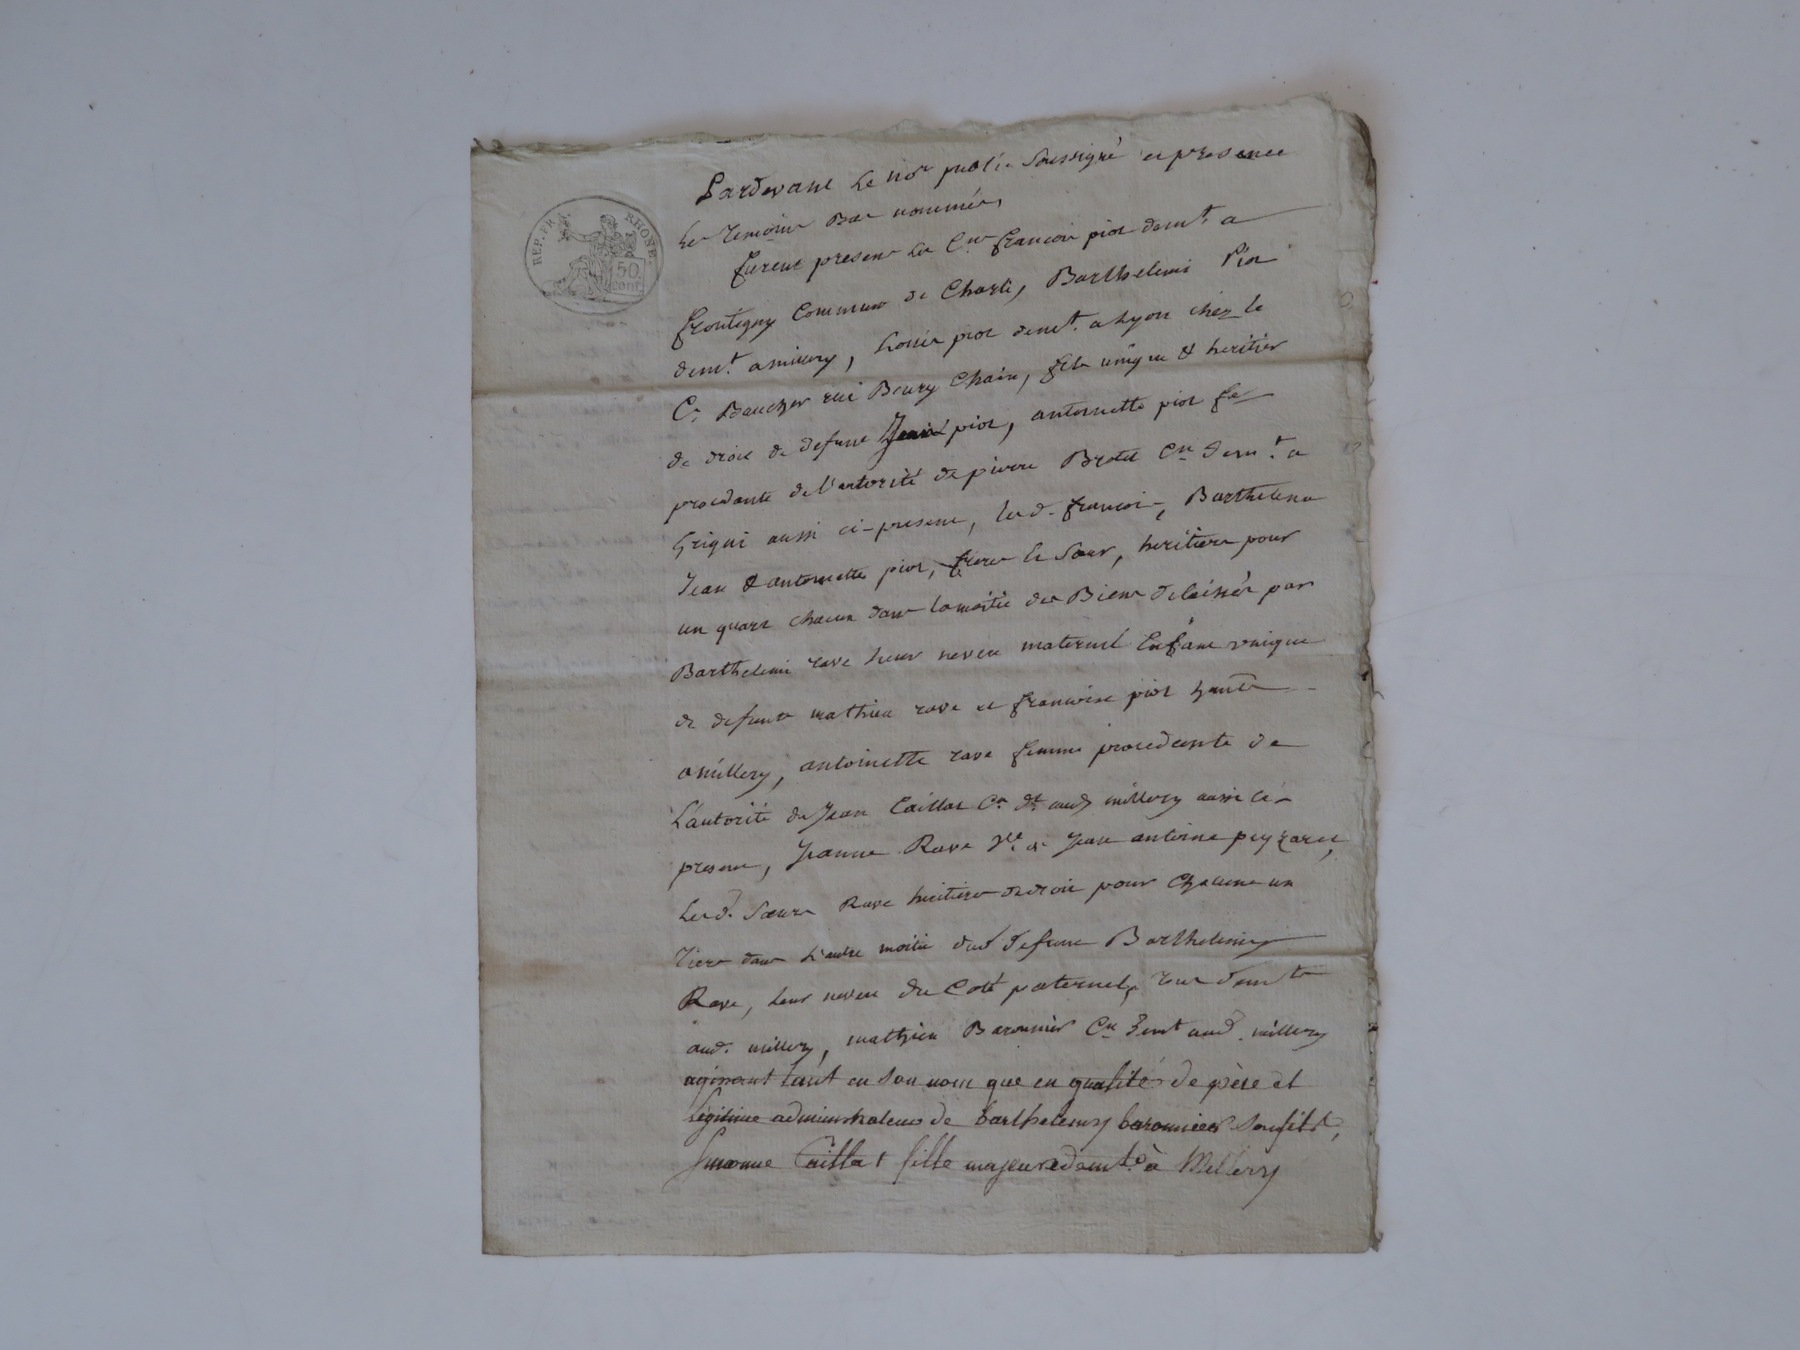 REP. FRA. RHONE.
50. cent.
Pardevant Le no.re public Soussigné et presence
des Temoins Bas nommés,
furent presens Les C.ens françois piot dem.t a
frontigny Commune de Charli, Barthelemi Piot
dem.t a millery, Louis piot dem.t a Lyon chez le
C.n rue Bourg Chain, fils unique & heritier
de droit de defunt piot, antoinette piot fe
procedante de l'autorité de pierre Brotet C.en dem.t a
Grigni aussi ci-present, lesd. francois, Barthelemi
Jean & antoinette piot, frere et Sœur, heritiers pour
un quart chacun dans la moitié des Biens délaissés par
Barthelemi rave leur neveu maternel Enfant unique
de defunts mathieu rave et francoise piot
a millery, antoinette rave femme procedante de
L'autorité de Jean Caillat C.n d.t aud. millery aussi ci-
present, Jeanne Rave v.ve de Jean antoine peyzaret,
Lesd. Sœurs Rave heritiere de droit pour chacune un
Tiers dans L'autre moitié dud. defunt Barthelemy
Rave, leur neveu du Coté paternel, tous dem.ts
aud. millery, mathieu Baronnier C.en dem.t aud. millery
agissant tant en son nom que en qualité de père et
légitime administrateur de barthelemy baronnier son fils,
Caillat fille majeure dem.te à Millery